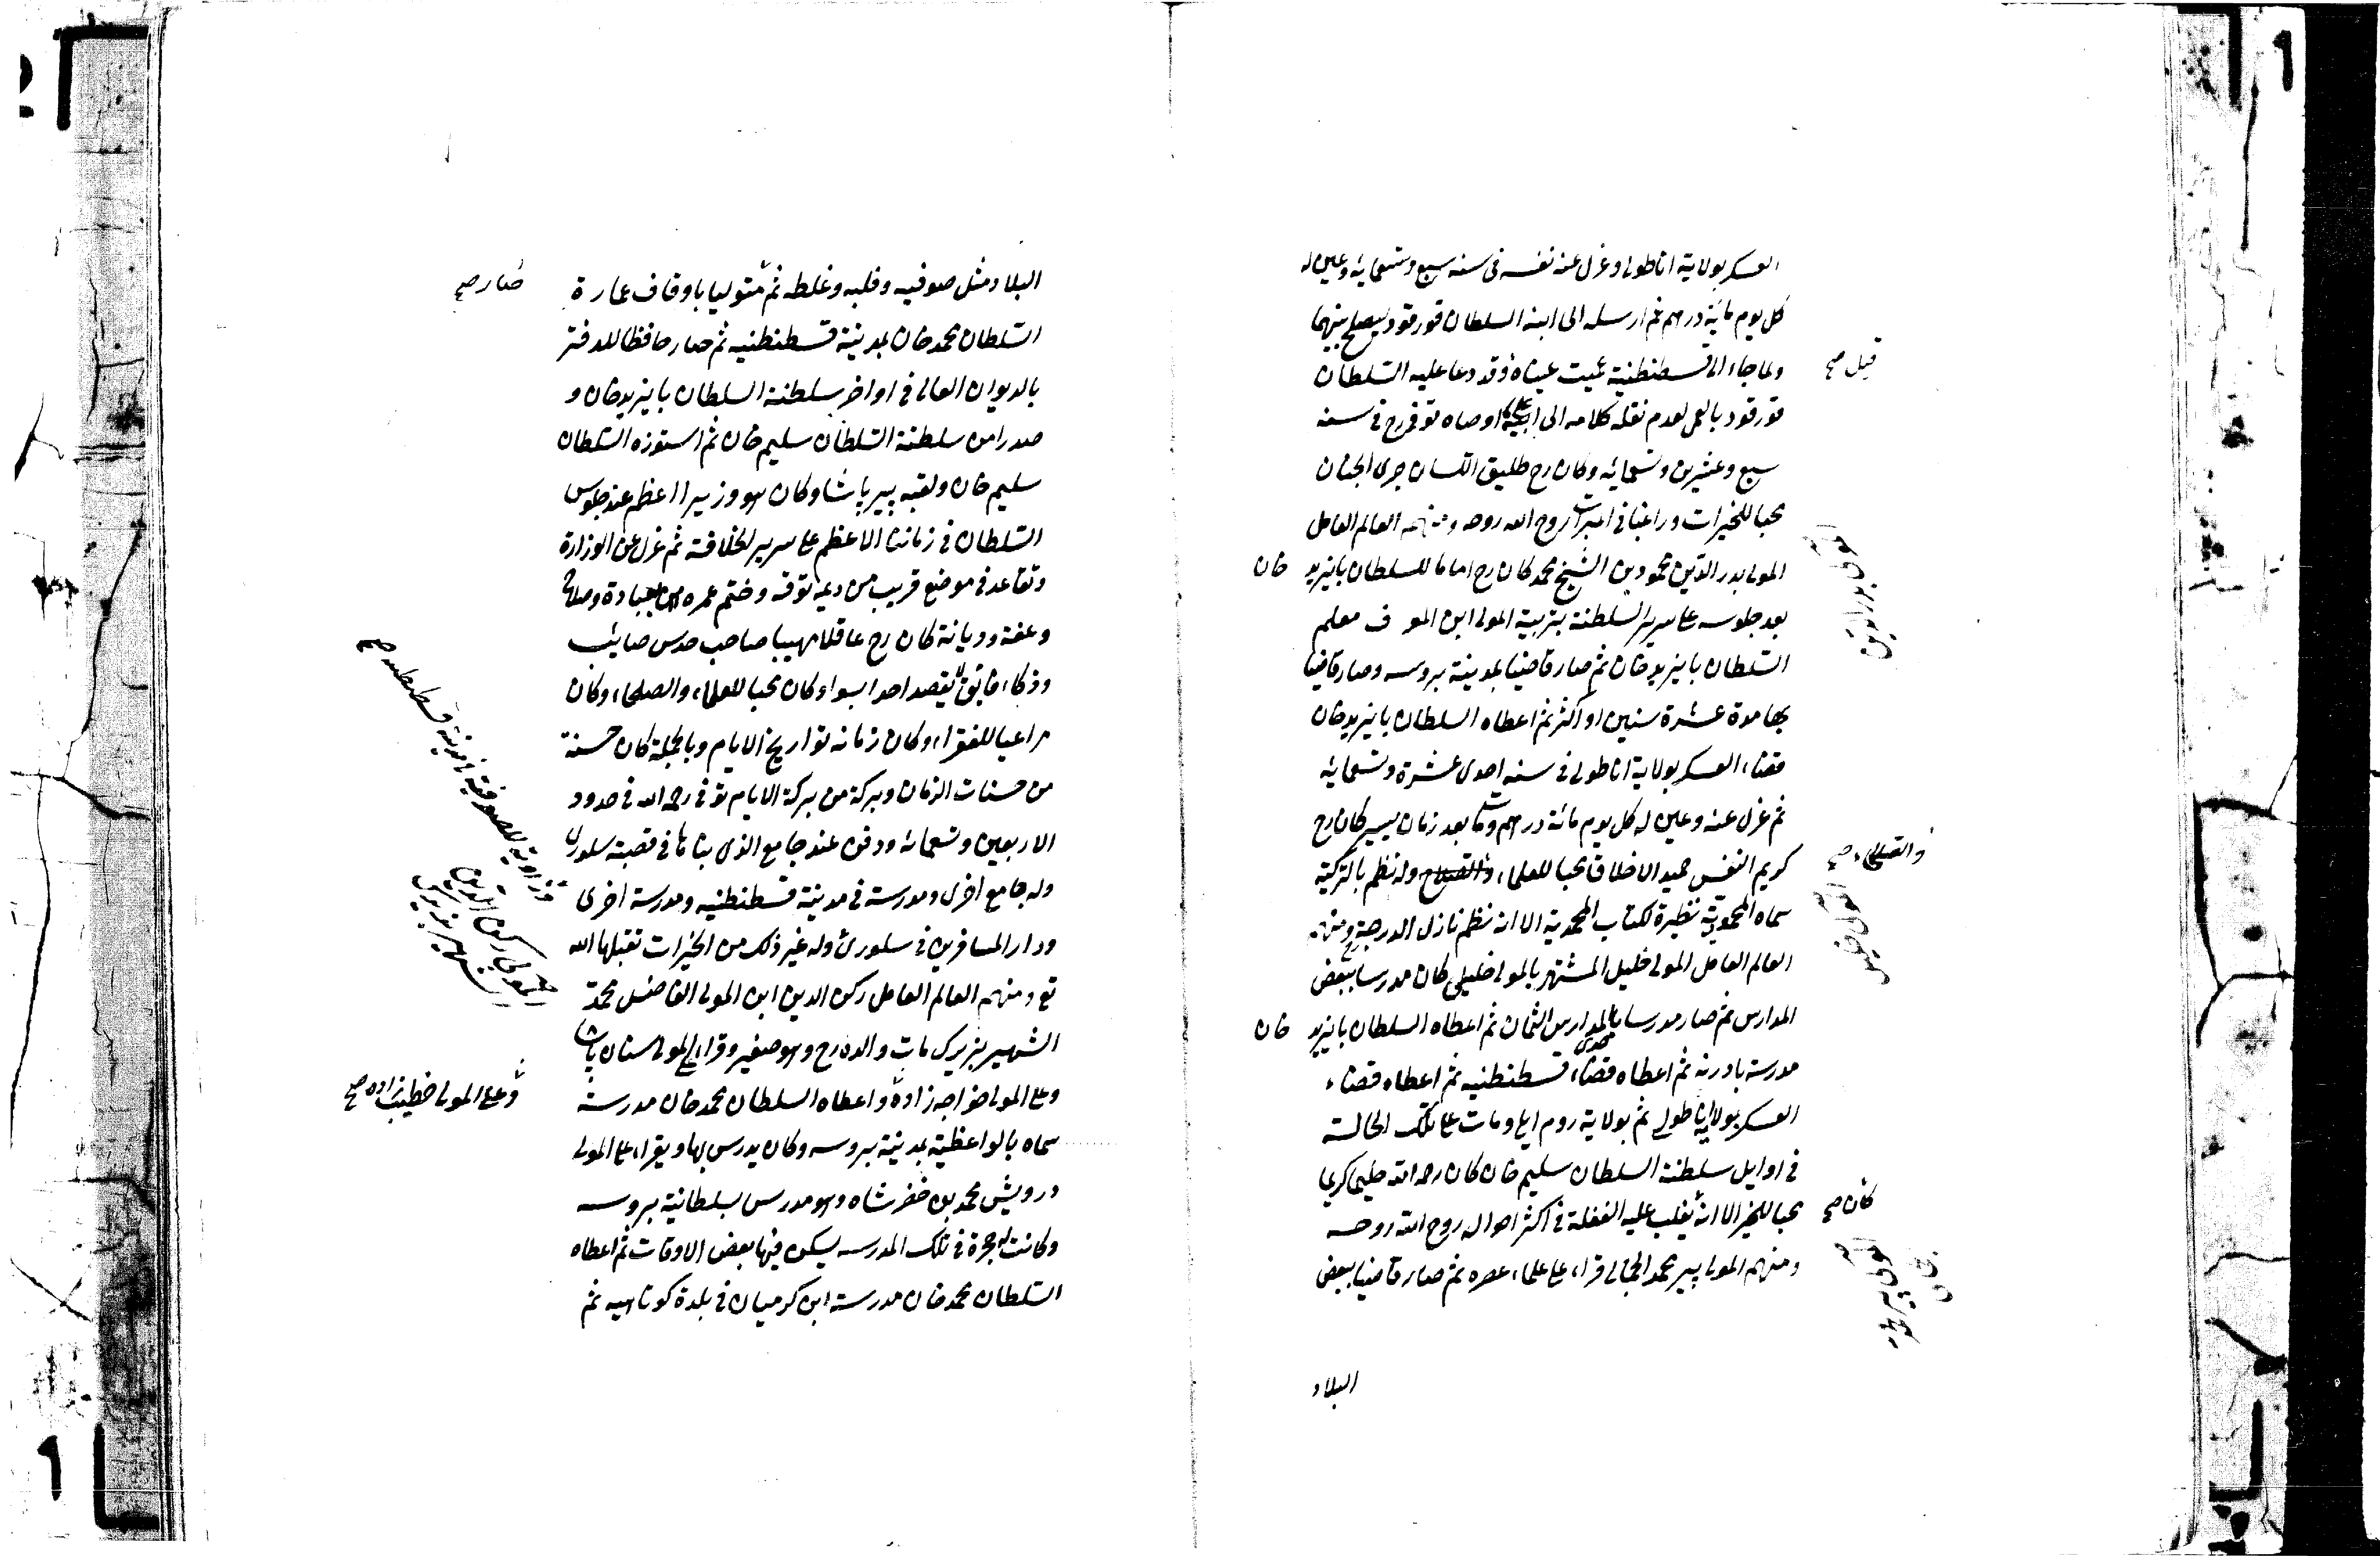 العسكر بولاية اناطولى وعزل عنه نفسه فى سنه سبع وتسعمائه وعين له
كل يوم مائة درهم ثم ارسله الى ابنه السلطان قورقود ليصلح بينهما
ولما جاء الى قسطنطنية عميت عيناه وقد دعا عليه السلطان
قيل صح
قورقود بالعمى لعدم نقله كلامه الى ابيه على ما اوصاه توفى رح فى سنه
سبع وعشرين وتسعمائه وكان رح طليق اللسان جرى الجنان
محبا للخيرات وراغبا فى المبرات روح الله روحه ومنهم العالم العامل
المولى بدر الدين محمود بن الشيخ محمد كان رح اماما للسلطان بايزيد خان
المولى بدر الدين
بعد جلوسه على سرير السلطنة بتربية المولى ابن المعرف معلم
السلطان بايزيد خان ثم صار قاضيا بمدينة بروسه وصار قاضيا
بها مدة عشرة سنين او اكثر ثم اعطاه السلطان بايزيد خان
قضاء العسكر بولاية اناطولى فى سنه احدى عشرة وتسعمائه
ثم عزل عنه وعين له كل يوم مائة درهم ومات بعد زمان يسير كان رح
كريم النفس حميد الاخلاق محبا للعلماء والصلاح وله نظم بالتركية
والصلحاء صح
سماه المحمودية نظيرة لكتاب المحمدية الا ان نظم نازل الدرجة ومنهم
العالم العامل المولى خليل المشتهر بالمولى خليلى كان مدرسا ببعض
المولى خليل
المدارس ثم صار مدرسا بالمدارس الثمان ثم اعطاه السلطان بايزيد خان
مدرسة بادرنه ثم اعطاه قضاء قسطنطنيه ثم اعطاه قضاء
العسكر بولاية اناطولى ثم بولاية روم ايلى ومات على تلك الحالة
فى اوايل سلطنة السلطان سليم خان كان رحمه الله حليما كريما
محبا للخير الا انه يغلب عليه الغفلة فى اكثر احواله روح الله روحه
كان صح
ومنهم المولى بير محمد الجمالى قراء على علماء عصره ثم صار قاضيا ببعض
المولى بير محمد
جمالى
البلاد
البلاد مثل صوفيه وفلبه وغلطه ثم متوليا باوقاف عمارة
صار صح
السلطان محمد خان بمدينة قسطنطنيه ثم صار حافظا للدفتر
بالديوان العالى فى اواخر سلطنة السلطان بايزيد خان و
صدرا من سلطنة السلطان سليم خان ثم استوزه السلطان
سليم خان ولقبه بيير باشا وكان هو وزيرا اعظم عند جلوس
السلطان فى زماننا الاعظم على سرير الخلافة ثم عزل عن الوزارة
وتقاعد فى موضع قريب من ديمه توقه وختم عمره بعبادة وصلاح
وعفة وديانة كان رح عاقلا مهيبا صاحب حدس صائب
وذكاء فائق لا يقصد احدا بسوء وكان محبا للعلماء والصلحاء وكان
مراعيا للفقراء وكان زمانه تواريخ الايام وبالجملة كان حسنة
من حسنات الزمان وبركة من بركة الايام توفى رحمه الله فى حدود
الاربعين وتسعمائه ودفن عند جامع الذى بناها فى قصبة سلورى
وله جامع اخرى ومدرسة فى مدينة قسطنطنيه ومدرسة اخرى
وزاوية للصوفية فى مدينة قسطنطنيه صح
ودار المسافرين فى سلورى وله غير ذلك من الخيرات تقبلها الله
تع ومنهم العالم العامل ركن الدين ابن المولى الفاضل محمد
المولى ركن الدين
الشهير بزيرك
الشهير بزيرك مات والده رح وهو صغير وقراء على المولى سنان باشا
وعلى المولى خواجه زاده واعطاه السلطان محمد خان مدرسة
وعلى المولى خطيب زاده صح
سماه بالواعظية بمدينة بروسه وكان يدرس بها ويقراء على المولى
درويش محمد بن خضر شاه وهو مدرس بسلطانية بروسه
وكانت له حجرة فى تلك المدرسه يسكن فيها بعض الاوقات ثم اعطاه
السلطان محمد خان مدرسة ابن كرميان فى بلدة كوتاهيه ثم